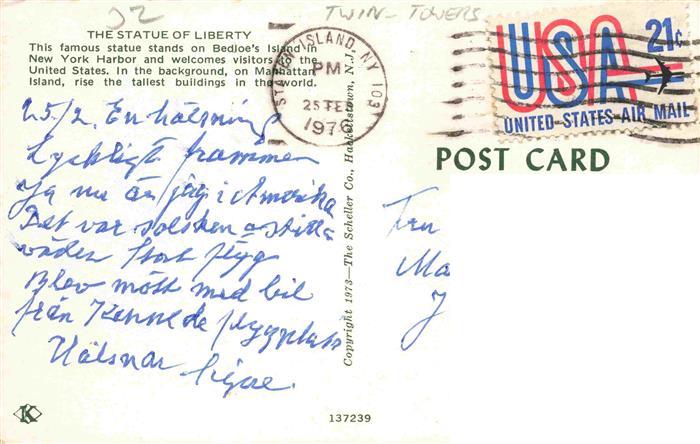 32
TWIN-TOWERS
THE STATUE OF LIBERTY
This famous statue stands on Bedloe's Island in
New York Harbor and welcomes visitors to the
United States. In the background, on Manhattan
Island, rise the tallest buildings in the world.
STATEN ISLAND, NY 103
PM
25 FEB
USA 21¢
UNITED STATES AIR MAIL
POST CARD
25/2. En hälsning
Lyckligt frammen
Ja nu är jag i Amerika
Det var solsken o stilla
väder Stort flygg
Blev mött med bil
från Kennede flyggplats
Hälsnar
Copyright 1973—The Scheller Co., Hackettstown, N.J.
Fru
Ma
J
K
137239